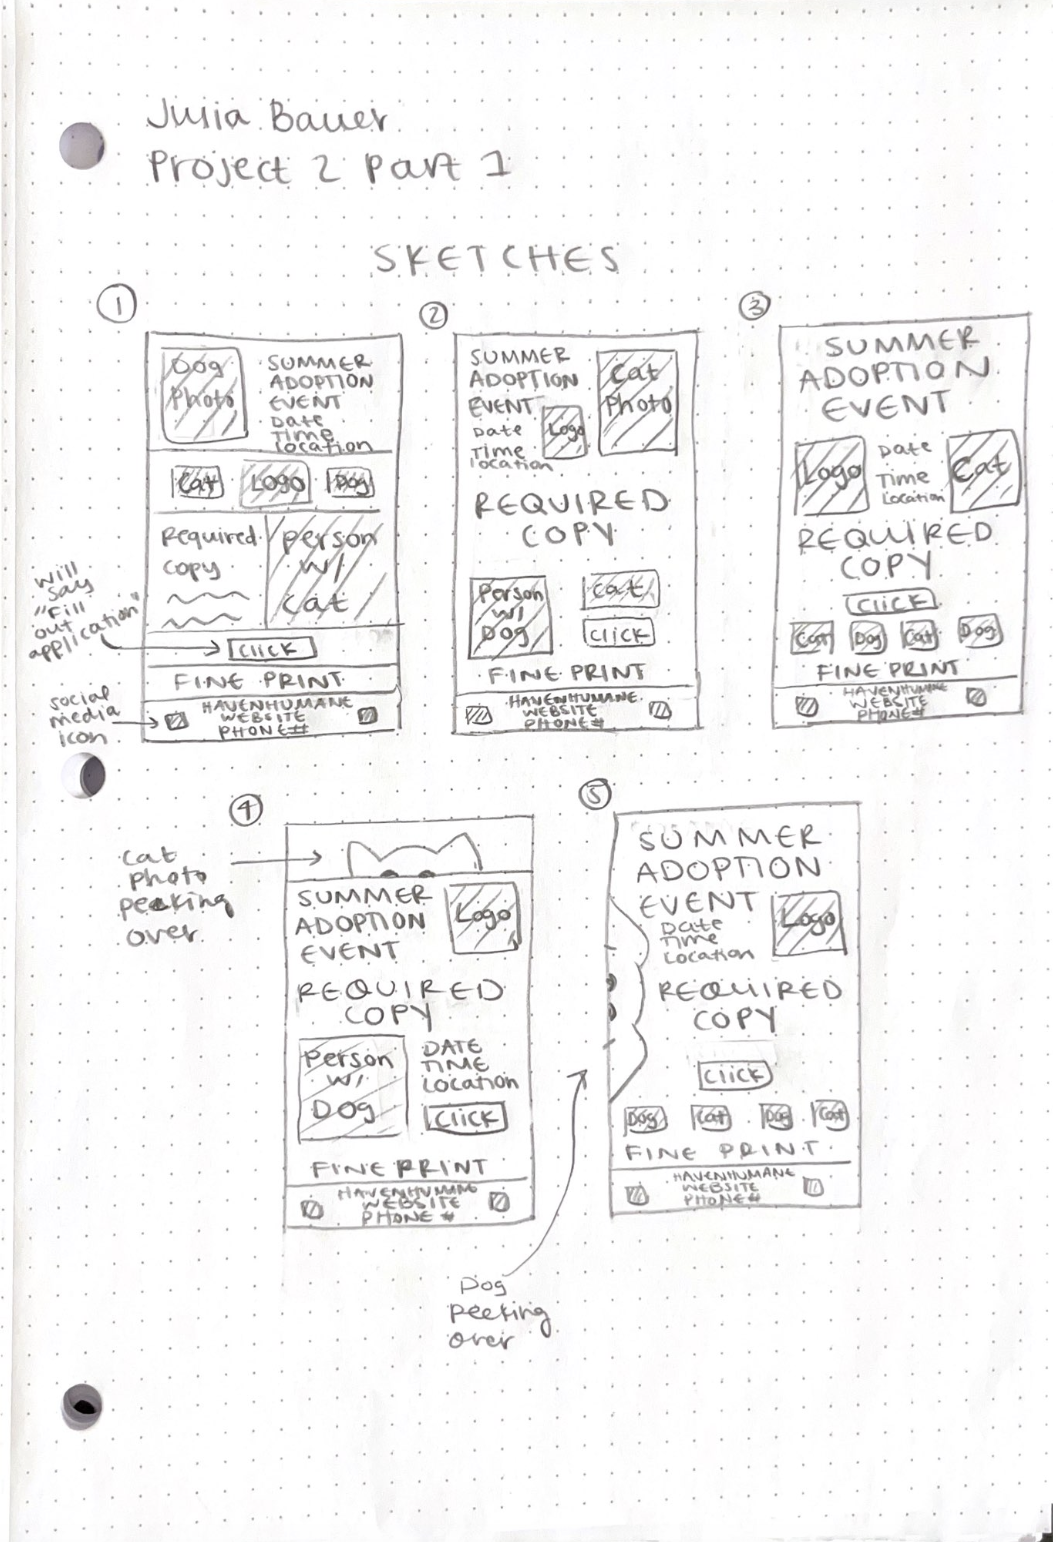 Julia Bauer
Project 2 Part 1
SKETCHES
1
Dog
Photo
SUMMER
ADOPTION
EVENT
Date
Time
Location
Cat
Logo
Dog
Required
copy
person
w/
cat
Click
FINE PRINT
HAVENHUMANE
WEBSITE
PHONE#
will
say
"Fill
out
application"
social
media
icon
2
SUMMER
ADOPTION
EVENT
Date
Time
Location
Logo
Cat
Photo
REQUIRED
COPY
Person
w/
Dog
Cat
Click
FINE PRINT
HAVENHUMANE
WEBSITE
PHONE#
3
SUMMER
ADOPTION
EVENT
Logo
Date
Time
Location
Cat
REQUIRED
COPY
Click
Cat
Dog
Cat
Dog
FINE PRINT
HAVENHUMANE
WEBSITE
PHONE#
4
cat
photo
peeking
over
SUMMER
ADOPTION
EVENT
Logo
REQUIRED
COPY
Person
w/
Dog
DATE
TIME
Location
Click
FINE PRINT
HAVENHUMANE
WEBSITE
PHONE #
5
SUMMER
ADOPTION
EVENT
Date
Time
Location
Logo
REQUIRED
COPY
Click
Dog
Cat
Dog
Cat
FINE PRINT
HAVENHUMANE
WEBSITE
PHONE#
Dog
peeking
over